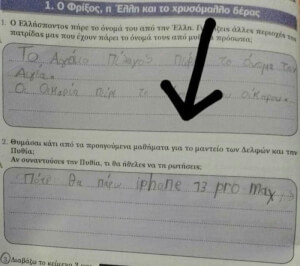 1. Ο Φρίξος, η Έλλη και το χρυσόμαλλο δέρας
1. Ο Ελλήσποντος πήρε το όνομά του από την Έλλη. άλλες περιοχές της
πατρίδας μας που έχουν πάρει το όνομά τους από πρόσωπα;
Το Αιγαίο Πέλαγος το όνομα του
Αιγαία.
Ο Ικαρία πήρε το Ικαρου.
2. Θυμάσαι κάτι από τα προηγούμενα μαθήματα για το μαντείο των Δελφών και την
Πυθία;
Αν συναντούσες την Πυθία, τι θα ήθελες να τη ρωτήσεις;
Πότε θα πάρω iphone 13 pro max;